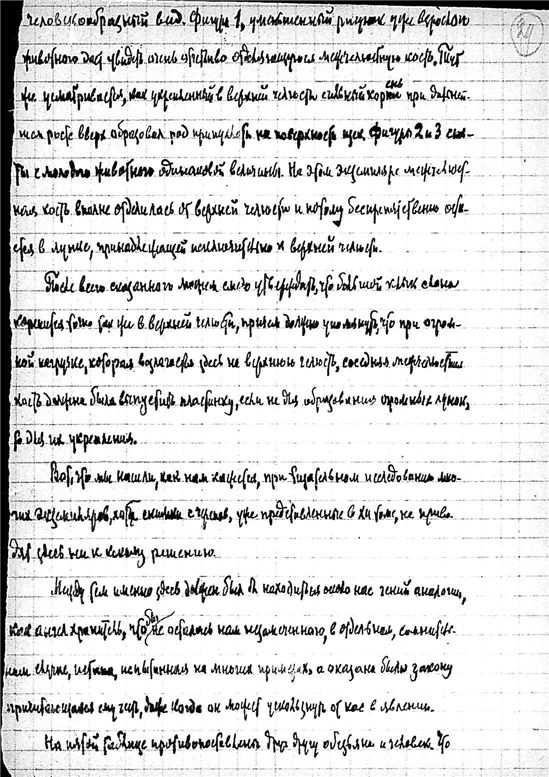 человекообразный вид. Фигура 1, уменьшенный рисунок при взрослом
животного дает увидеть очень отчетливо отделяющуюся межчелюстную кость. Тут
же усматривается, как укрепленный в верхней челюсти сильный корень при дальней-
шем росте вверх образовал под припухлость на поверхности щек. Фигуры 2 и 3 сня-
ты с молодого животного одинаковой величины. На этом экземпляре межчелюст-
ная кость вполне отделилась от верхней челюсти и потому беспрепятственно оста-
ется в лунке, принадлежащей исключительно к верхней челюсти.
После всего сказанного можем смело утверждать, что большой клык слона
коренится точно так же в верхней челюсти, причем должно упомянуть, что при огром-
ной нагрузке, которая возлагается здесь на верхнюю челюсть, соседняя межчелюстная
кость должна была выпустить пластинку, если не для образования огромных лунок,
то для их укрепления.
Вот, что мы нашли, как нам кажется, при тщательном исследовании мно-
гих экземпляров, хотя снимки с черепов, уже представленные в томе, не приво-
дят здесь ни к какому решению.
Между тем именно здесь должен был бы находиться около нас гений аналогии,
как ангел хранитель, чтобы не осталась нам незамеченной, в отдельном, сомнитель-
ном случае, истина, испытанная на многих примерах, а оказана была закону
причитающаяся ему честь, даже когда он может ускользнуть от нас в явлении.
На пятой таблице противопоставлены друг другу обезьяна и человек. Что